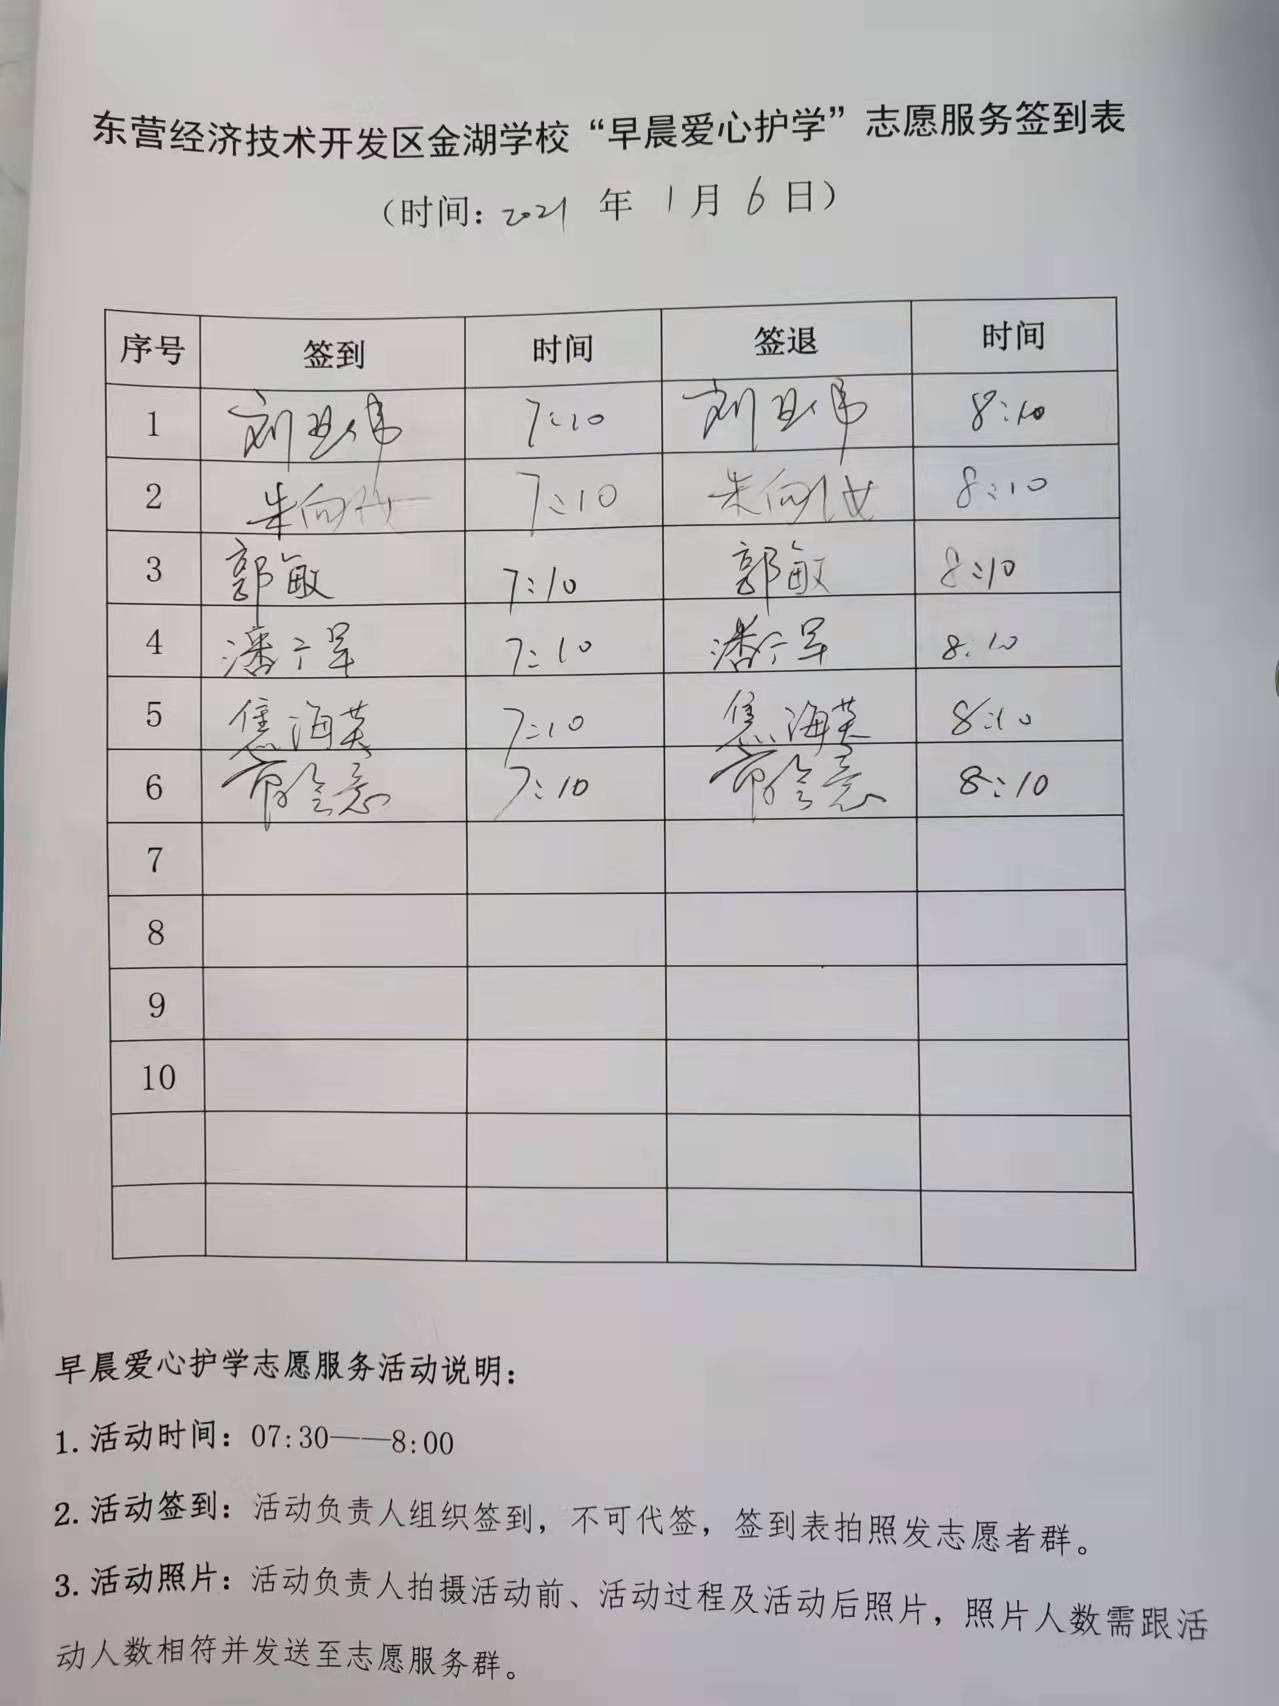 东营经济技术开发区金湖学校“早晨爱心护学”志愿服务签到表
（时间：2021 年 1月 6日）
序号 签到 时间 签退 时间
1 7:10 8:10
2 朱向 7:10 朱向 8:10
3 郭敏 7:10 郭敏 8:10
4 潘广军 7:10 潘广军 8:10
5 焦海英 7:10 焦海英 8:10
6 7:10 8:10
7
8
9
10
早晨爱心护学志愿服务活动说明：
1.活动时间：07:30——8:00
2.活动签到：活动负责人组织签到，不可代签，签到表拍照发志愿者群。
3.活动照片：活动负责人拍摄活动前、活动过程及活动后照片，照片人数需跟活
动人数相符并发送至志愿服务群。